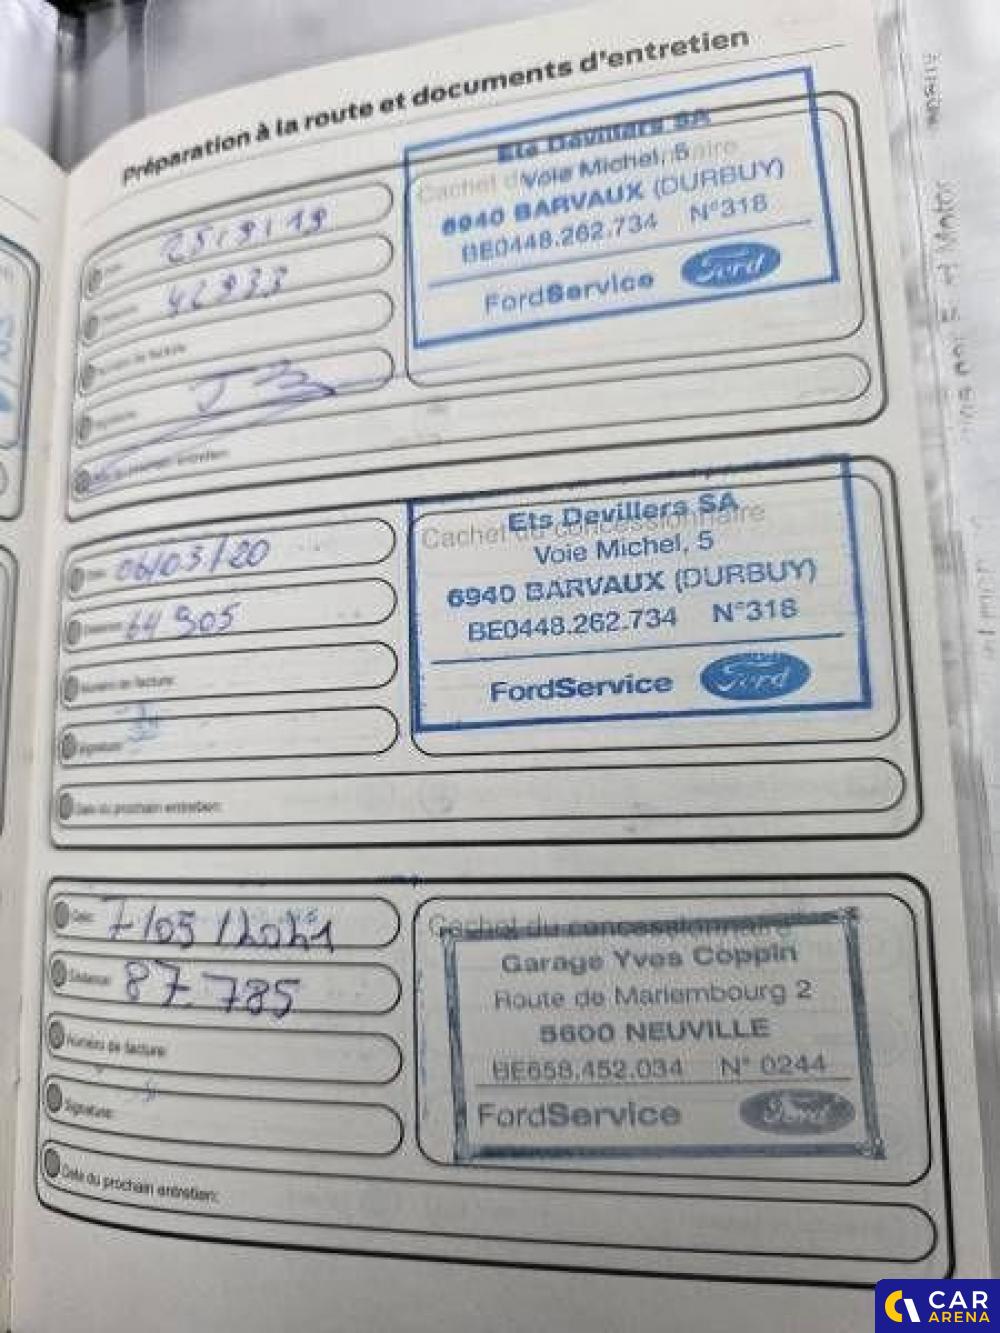 Préparation à la route et documents d'entretien
Ets Devillers SA
Voie Michel, 5
6940 BARVAUX (DURBUY)
BE0448.262.734 N°318
FordService Ford
25/9/19
42933
Cachet du concessionnaire
Ets Devillers SA
Voie Michel, 5
6940 BARVAUX (DURBUY)
BE0448.262.734 N°318
FordService Ford
06/03/20
64 905
Numéro de facture:
Signature:
Date du prochain entretien:
Cachet du concessionnaire
Garage Yves Coppin
Route de Mariembourg 2
5600 NEUVILLE
BE658.452.034 N° 0244
FordService Ford
Date: 7/05/2021
Distance: 87 785
Numéro de facture:
Signature:
Date du prochain entretien:
CAR
ARENA